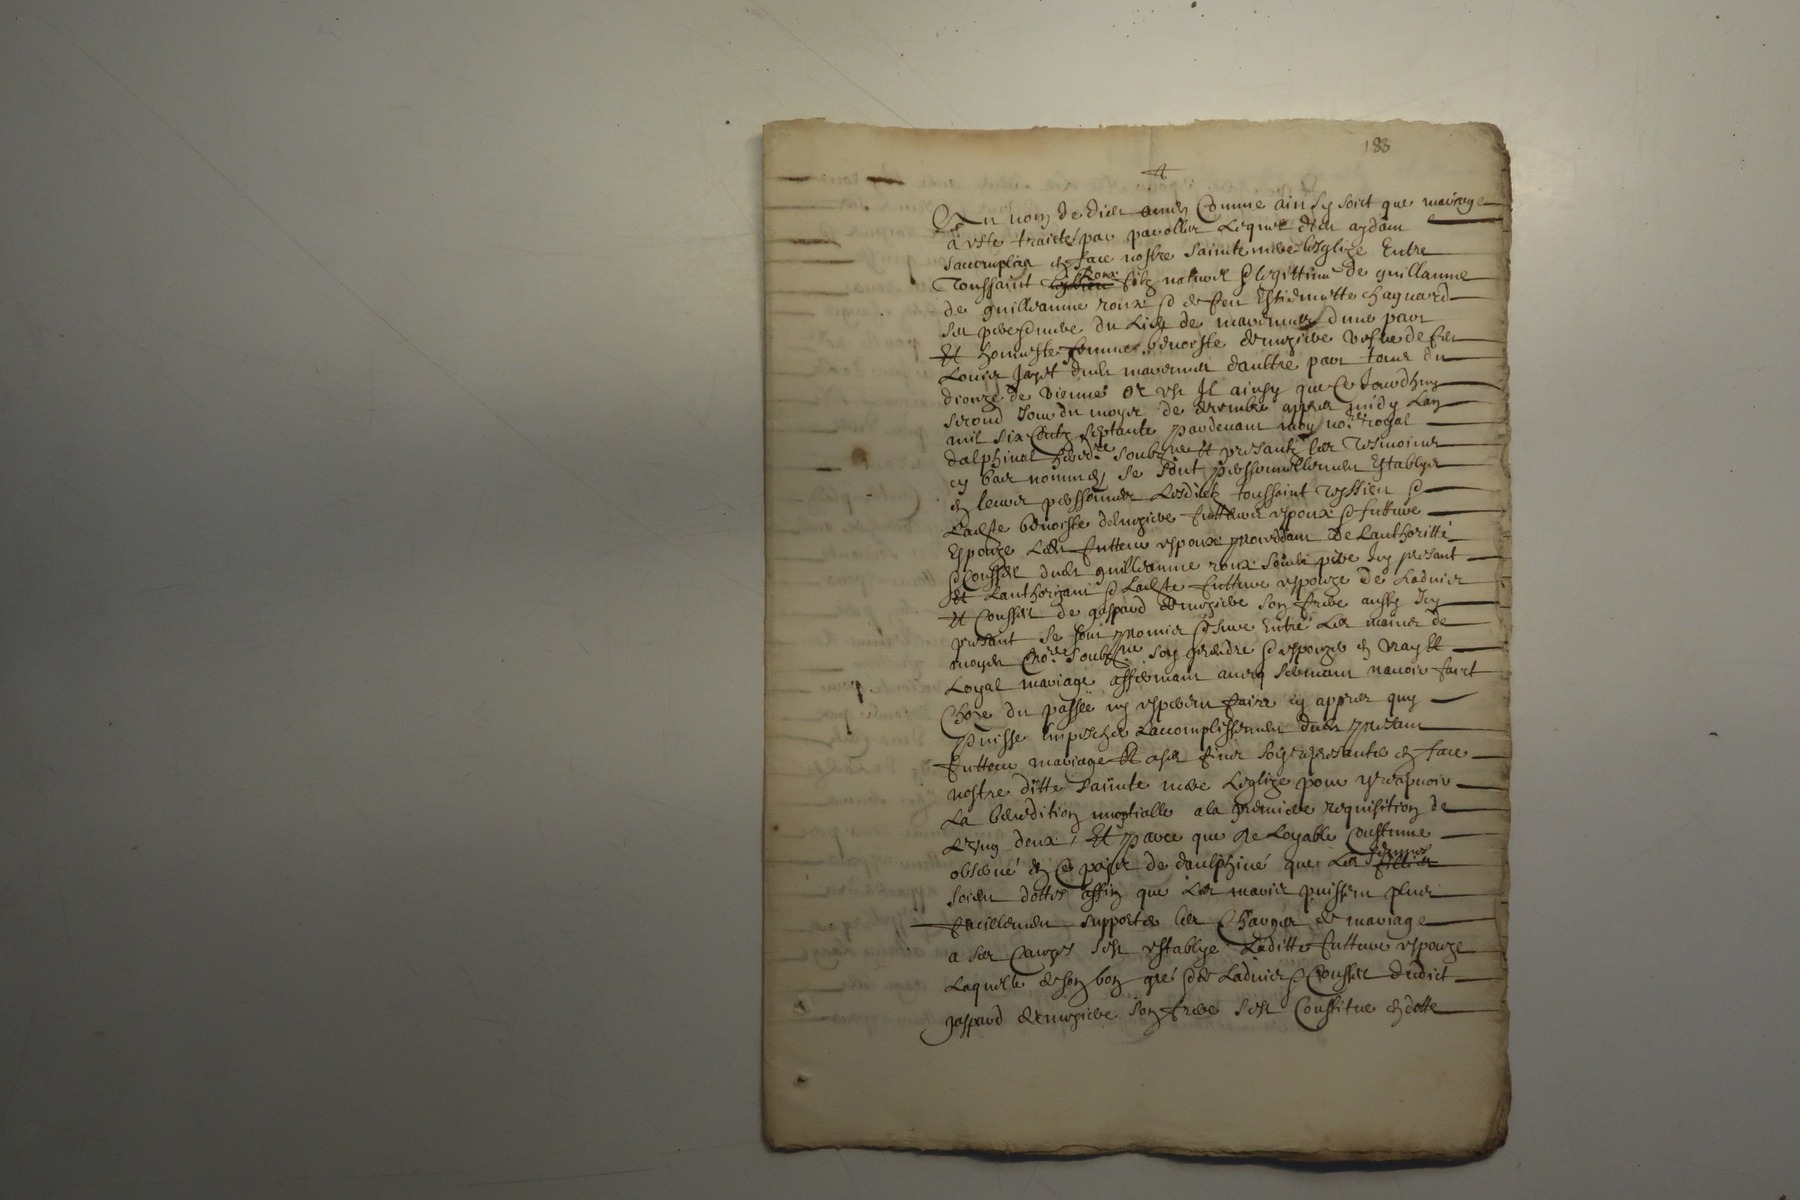 183
Au nom de dieu amen Comme ainsy soict que mariage
à este traicté par parolles Lequel dieu aydant
saccomplira en face nostre sainte mere leglize Entre
Toussaint Roux filz naturel & legittime de guillaume
de guilleaume roux & de feu Estiennette chaguard
ses pere & mere du Lieu de d'une part
Et honneste femme benoiste vefve de feu
Louis dudit daultre part tous du
dioceze de vienne Or est Il ainsy que Ce Jourdhuy
second Jour du moys de decembre appres midy Lan
mil six Centz septante pardevant moy no.re royal
dalphinal soubz.ne et presantz les tesmoins
cy bas nommés se sont personnellement Establys
en leurs personnes Lesditz toussaint &
Ladite benoiste futturs espoux & futture
Espouze Ledit futteur espoux procedant de Lauthoritté
& Conseil dudit guilleaume roux sondit pere Icy presant
et Lauthorizant & Ladite futture espouze de Ladvis
et Conseil de gaspard son frere aussy Icy
presant se sont promis & Jure Entre Les mains de
moydit No.re soubz.ne soy prendre & espouzer en vray et
Loyal mariage affirmant avecq serment navoir faict
Choze du passée ny esperer faire cy appres quy
puisse empescher Laccomplissement dudit presant
futteur mariage Et a ses fins soy representer en face
nostre ditte sainte mere Leglize pour y recepvoir
La benedition nuptialle a la premiere requisition de
Lung deux, Et parce que de Loyable Coustume
observé en Ce pays de daulphiné que Les femmes
soient dottés affin que Les maris puissent plus
facillement supporter les Charges de mariage
a ses Causes sest establye Laditte futture espouze
Laquelle de son bon gré & de Ladvis & Conseil dudict
gaspard son frere sest Constitue en dotte